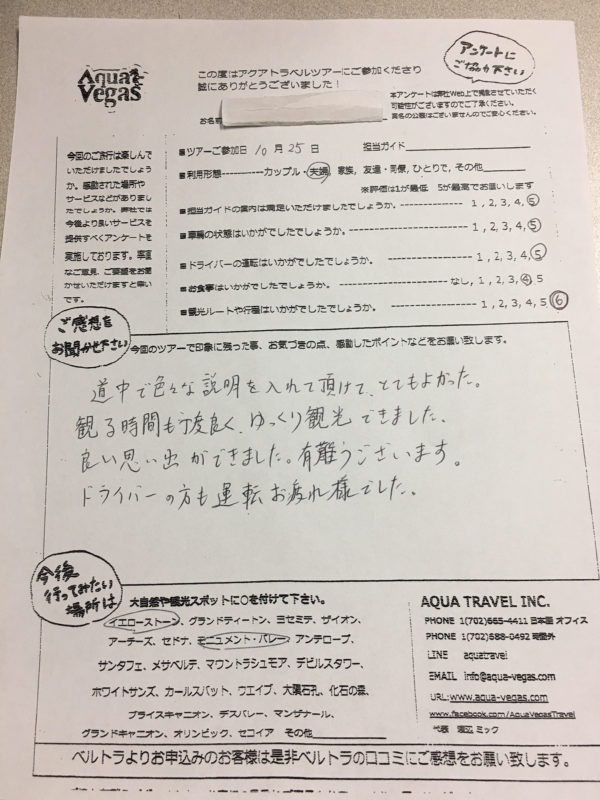 Aqua
Vegas
この度はアクアトラベルツアーにご参加くださり
誠にありがとうございました！
アンケートに
ご協力下さい
本アンケートは弊社Web上で掲載させていただく
可能性がございますのでご了承ください。
実名の公開はございませんのでご安心ください。
お名前
■ツアーご参加日 10 月 25 日 担当ガイド
■利用形態-----------カップル・夫婦, 家族, 友達・同僚, ひとりで, その他
※評価は1が最低 5が最高でお願いします
■担当ガイドの案内は満足いただけましたでしょうか。 1, 2, 3, 4, 5
■車輌の状態はいかがでしたでしょうか。 1, 2, 3, 4, 5
■ドライバーの運転はいかがでしたでしょうか。 1, 2, 3, 4, 5
■お食事はいかがでしたでしょうか。 なし, 1, 2, 3, 4, 5
■観光ルートや行程はいかがでしたでしょうか。 1, 2, 3, 4, 5 6
今回のご旅行は楽しんで
いただけましたでしょう
か。感動された場所や
サービスなどがありまし
たでしょうか。弊社では
今後より良いサービスを
提供すべくアンケートを
実施しております。率直
なご意見、ご要望をお聞
かせいただけますと幸い
です。
ご感想を
お聞かせ下さい
今回のツアーで印象に残った事、お気づきの点、感動したポイントなどをお願い致します。
道中で色々な説明を入れて頂けて、とてもよかった。
観る時間も丁度良く、ゆっくり観光できました、
良い思い出ができました。有難うございます。
ドライバーの方も運転お疲れ様でした、
今後
行ってみたい
場所は
大自然や観光スポットに○を付けて下さい。
イエローストーン、グランドティートン、ヨセミテ、ザイオン、
アーチーズ、セドナ、モニュメント・バレー アンテロープ、
サンタフェ、メサベルデ、マウントラシュモア、デビルスタワー、
ホワイトサンズ、カールスバット、ウエイブ、大隕石孔、化石の森、
ブライスキャニオン、デスバレー、マンザナール、
グランドキャニオン、オリンピック、セコイア その他
AQUA TRAVEL INC.
PHONE 1(702)665-4411 日本語 オフィス
PHONE 1(702)688-0492 時間外
LINE aquatravel
EMAIL info@aqua-vegas.com
URL: www.aqua-vegas.com
www.facebook.com/AquaVegasTravel
代表 渡辺 ミック
ベルトラよりお申込みのお客様は是非ベルトラの口コミにご感想をお願い致します。